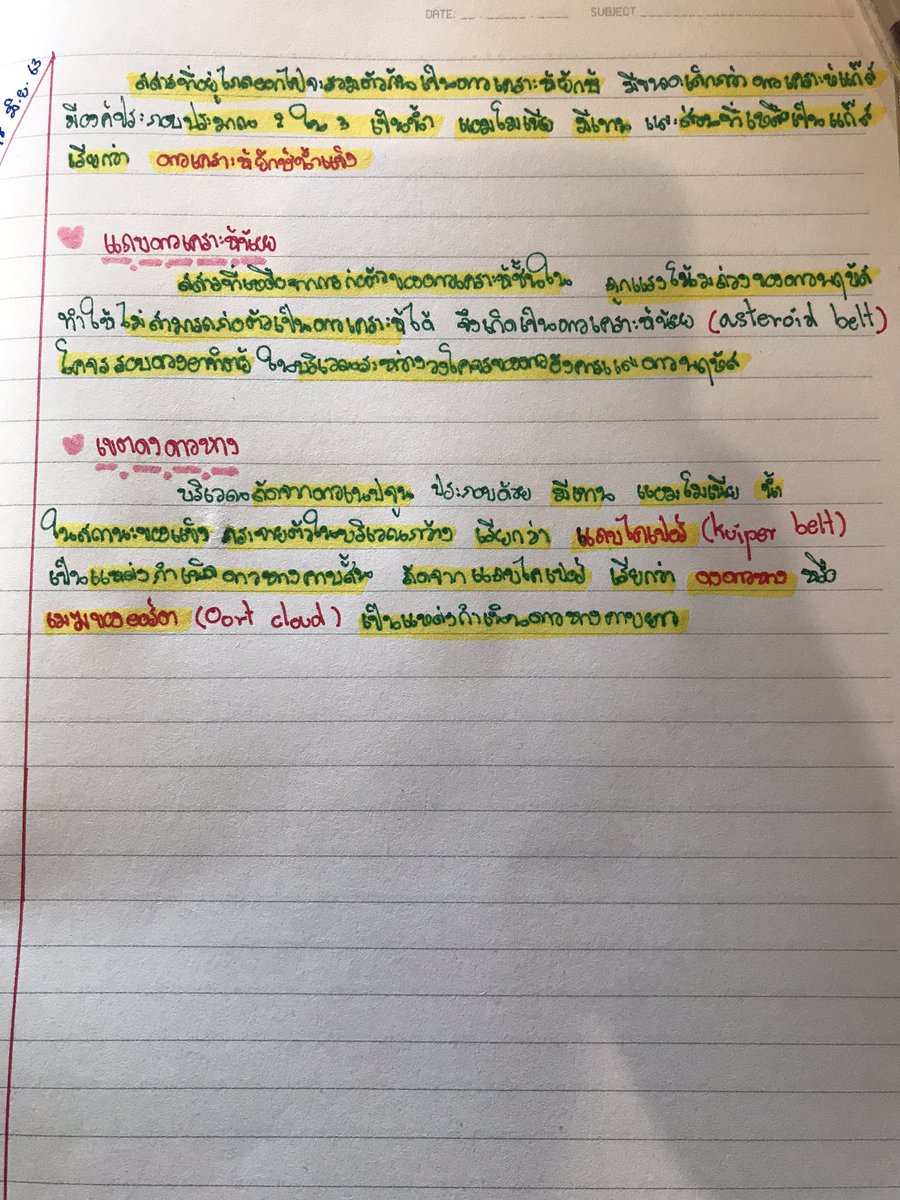 DATE: SUBJECT
มิ.ย. 63
สสารที่อยู่ไกลออกไปจะรวมตัวกันเป็นดาวเคราะห์ยักษ์ มีขนาดเล็กกว่า ดาวเคราะห์แก๊ส
มีองค์ประกอบประมาณ 2 ใน 3 เป็นน้ำ แอมโมเนีย มีเทน และส่วนที่เหลือเป็นแก๊ส
เรียกว่า ดาวเคราะห์ยักษ์น้ำแข็ง
แถบดาวเคราะห์น้อย
สสารที่เหลือจากการก่อตัวของดาวเคราะห์ชั้นใน ถูกแรงโน้มถ่วงของดาวพฤหัส
ทำให้ไม่สามารถก่อตัวเป็นดาวเคราะห์ได้ จึงเกิดเป็นดาวเคราะห์น้อย (asteroid belt)
โคจรรอบดวงอาทิตย์ ในบริเวณระหว่างวงโคจรของดาวอังคารและดาวพฤหัส
เขตดงดาวหาง
บริเวณถัดจากดาวเนปจูน ประกอบด้วย มีเทน แอมโมเนีย น้ำ
ในสถานะของแข็ง กระจายตัวในบริเวณกว้าง เรียกว่า แถบไคเปอร์ (kuiper belt)
เป็นแหล่งกำเนิดดาวหางคาบสั้น ถัดจากแถบไคเปอร์ เรียกว่า ดงดาวหาง หรือ
เมฆของออร์ต (Oort cloud) เป็นแหล่งกำเนิดดาวหางคาบยาว